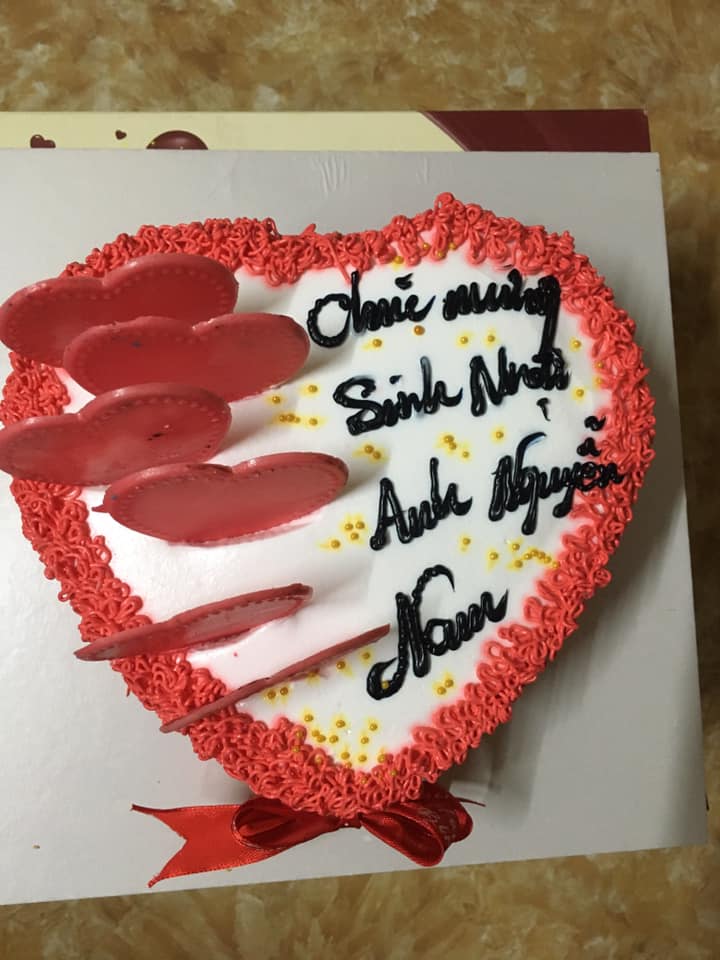 chúc mừng
Sinh Nhật
Anh Nguyễn
Nam